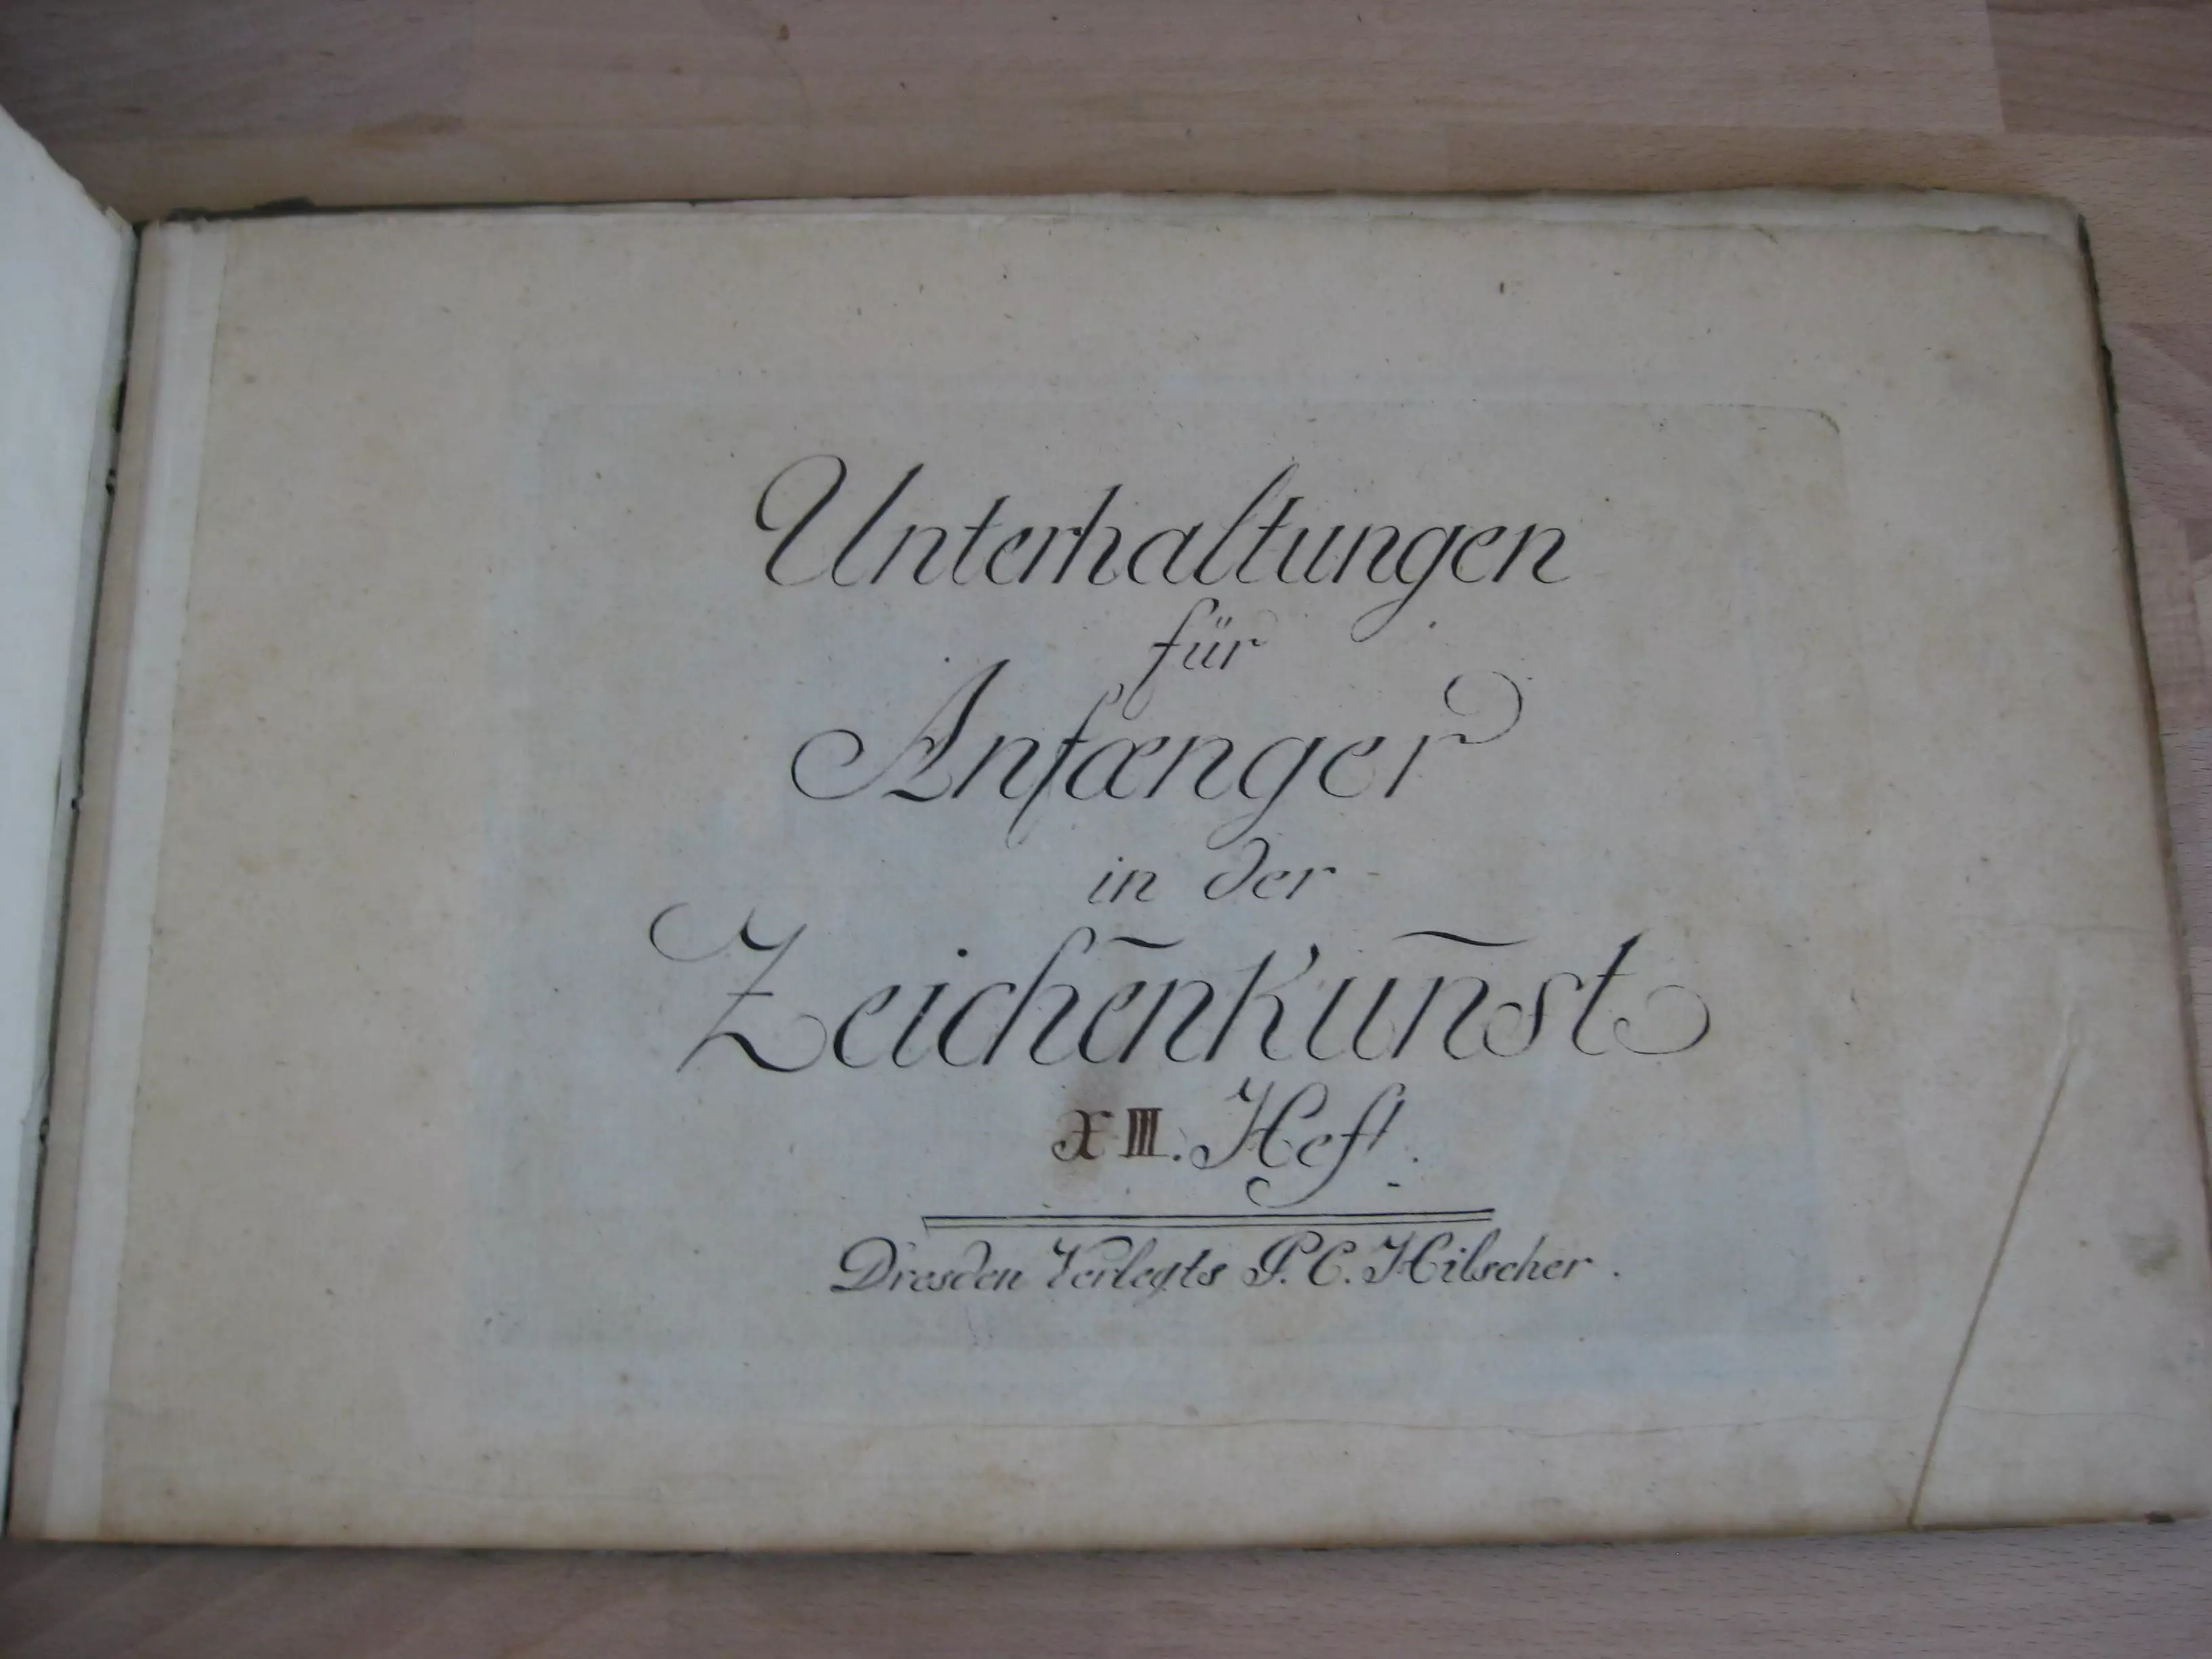 Unterhaltungen
für
Anfænger
in der
Zeichen̄kun̄st
XIII. Heft.
Dresden Verlegts P. C. Hilscher.